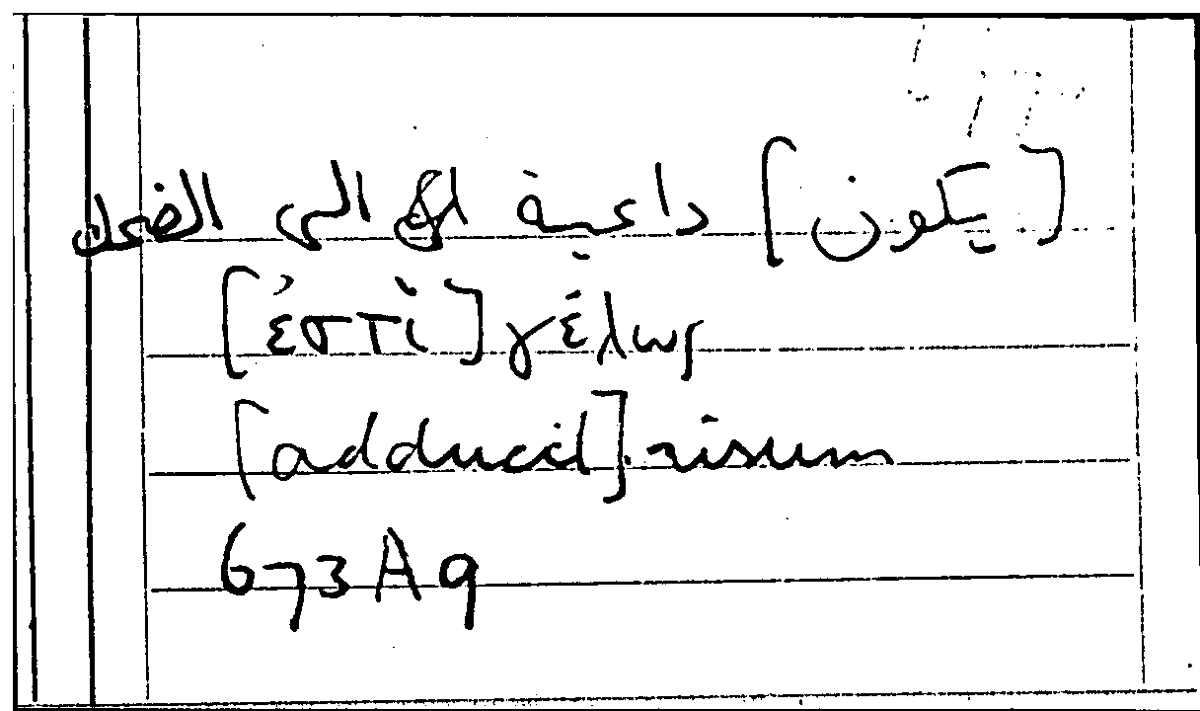 [يكون] داعية الى الضحك
[ἐστὶ] γέλως
[adducit] risum
673A9